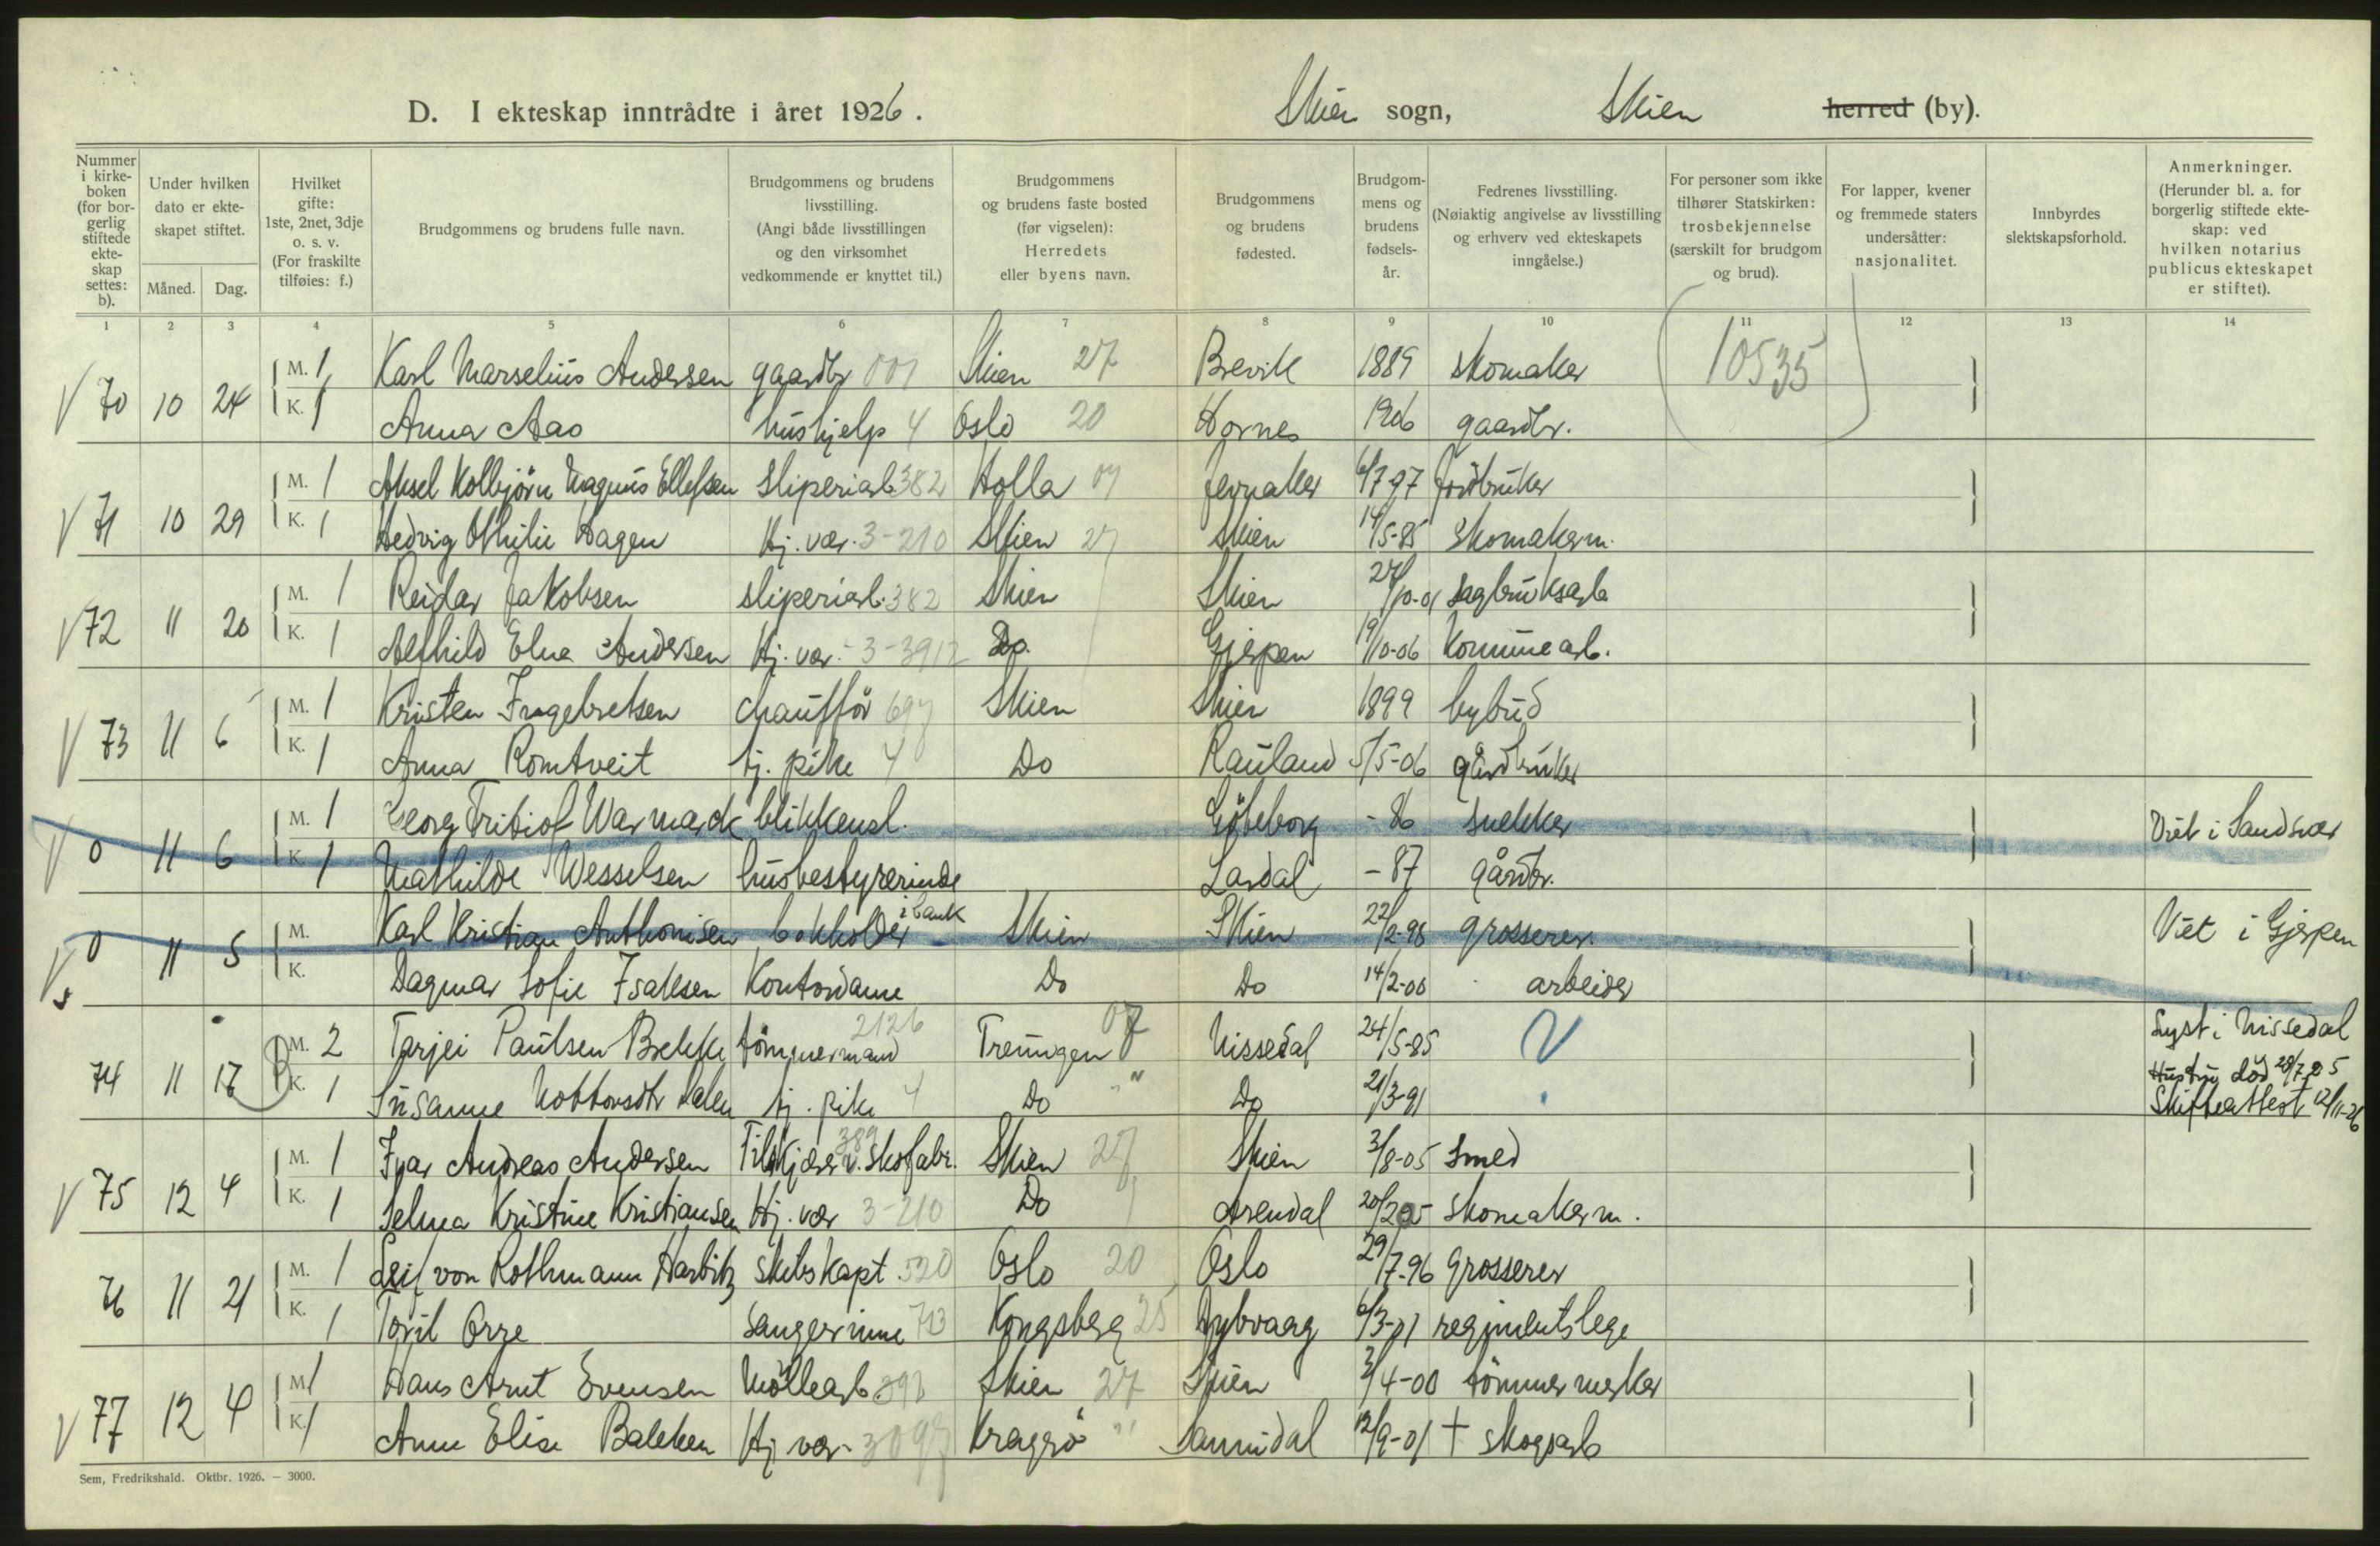 D. I ekteskap inntrådte i året 1926. Skien sogn, Skien herred (by).
Nummer i kirkeboken (for borgerlig stiftede ekteskap settes: b).
Under hvilken dato er ekteskapet stiftet.
Måned. Dag.
Hvilket gifte: 1ste, 2net, 3dje o. s. v. (For fraskilte tilføies: f.)
Brudgommens og brudens fulle navn.
Brudgommens og brudens livsstilling. (Angi både livsstillingen og den virksomhet vedkommende er knyttet til.)
Brudgommens og brudens faste bosted (før vigselen): Herredets eller byens navn.
Brudgommens og brudens fødested.
Brudgommens og brudens fødselsår.
Fedrenes livsstilling. (Nøiaktig angivelse av livsstilling og erhverv ved ekteskapets inngåelse.)
For personer som ikke tilhører Statskirken: trosbekjennelse (særskilt for brudgom og brud).
For lapper, kvener og fremmede staters undersåtter: nasjonalitet.
Innbyrdes slektskapsforhold.
Anmerkninger. (Herunder bl. a. for borgerlig stiftede ekteskap: ved hvilken notarius publicus ekteskapet er stiftet).
1 2 3 4 5 6 7 8 9 10 11 12 13 14
V 70 10 24 M. 1 Karl Marselius Andersen gaardbr 001 Skien 27 Brevik 1889 skomaker (10535)
K. 1 Anna Aas hushjelp 4 Oslo 20 Hornes 1906 gaardbr.
V 71 10 29 M. 1 Aksel Kolbjörn Magnus Ellefsen sliperiarb. 382 Holla 07 Jevnaker 6/7-97 Jordbruker
K. 1 Hedvig Othilie Hagen Hj. vær. 3-210 Skien 27 Skien 14/5-85 skomakerm.
V 72 11 20 M. 1 Reidar Jakobsen sliperiarb. 382 Skien Skien 27/10-01 sagbruksarb
K. 1 Alfhild Elna Andersen Hj. vær. 3-3912 Do. Gjerpen 19/10-06 Kommunearb.
V 73 11 6 M. 1 Kristen Ingebretsen chaufför 697 Skien Skien 1899 bybud
K. 1 Anna Romtveit tj. pike 4 Do Rauland 5/5-06 gårdbruker
V 0 11 6 M. 1 Georg Fritiof Warmark blikkensl. Göteborg -86 snekker Viet i Sandsvær
K. 1 Mathilde Wesselsen husbestyrerinde Lardal -87 gårdbr.
V 0 11 5 M. Karl Kristian Anthonisen bokholder i bank Skien Skien 22/2-98 grosserer. Viet i Gjerpen
K. Dagmar Sofie Isaksen Kontordame Do Do 14/2-00 arbeider
74 11 17 M. 2 Tarjei Paulsen Brekke tömmermand 2126 Treungen 07 Nissedal 24/5-85 Lyst i Nissedal
K. 1 Susanne tj. pike 4 Do " Do 21/3-91 Hustru död 28/7 25
Skifteattest 12/11-26
V 75 12 4 M. 1 Ivar Andreas Andersen Tilskjærer v. skofabr. 389 Skien 27 Skien 3/8-05 smed
K. 1 Selma Kristine Kristiansen Hj. vær 3-210 Do Arendal 20/2 05 skomakerm.
76 11 21 M. 1 Leif von Rothmann Harbitz skibskapt 520 Oslo 20 Oslo 29/7-96 Grosserer
K. 1 Toril Orre sangerinne 713 Kongsberg 25 Dybvaag 6/3-01 regimentslege
V 77 12 4 M. 1 Hans Arnt Evensen Möllearb 393 Skien 27 Skien 3/4-00 tömmermerker
K. 1 Anne Elise Bakken Hj. vær. 3097 Kragerö " Sannidal 12/9-01 † skogsarb
Sem, Fredrikshald. Oktbr. 1926. — 3000.